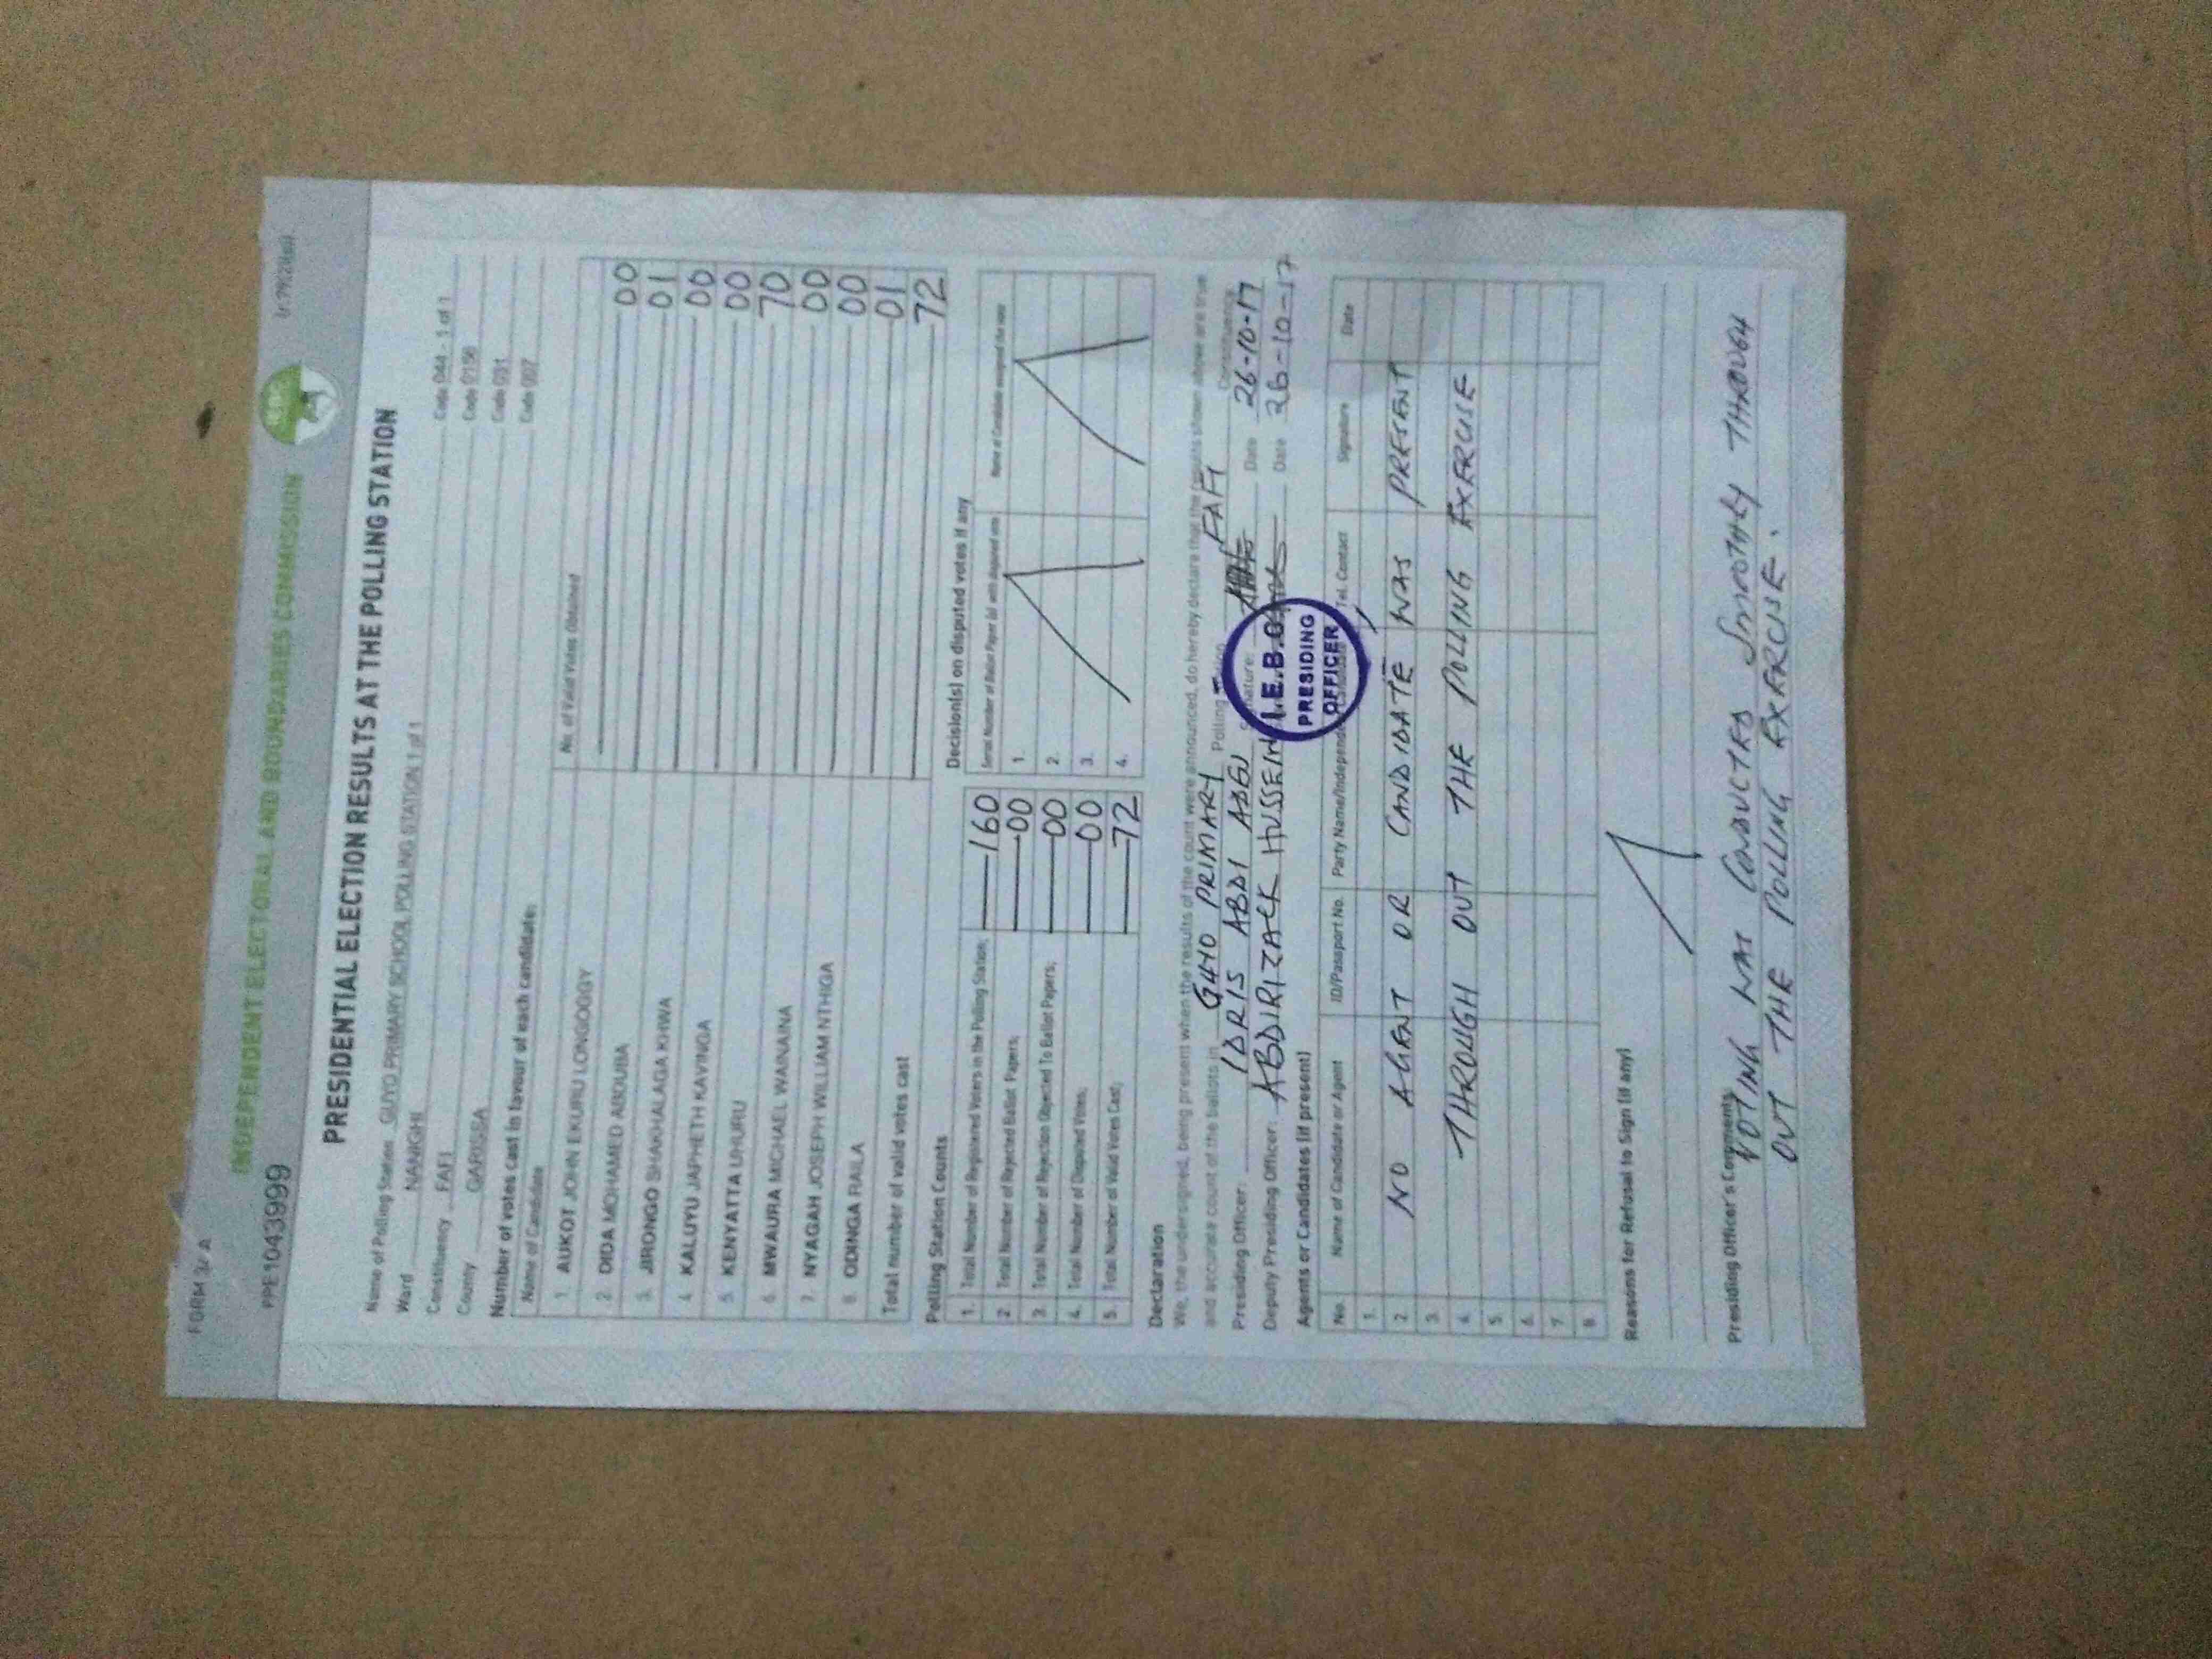 FORM 34A
INDEPENDENT ELECTORAL AND BOUNDARIES COMMISSION
PPE1043999
IEBC
PRESIDENTIAL ELECTION RESULTS AT THE POLLING STATION
Name of Polling Station GUYO PRIMARY SCHOOL POLLING STATION 1 of 1 Code 044 1 of 1
Ward NANIGHI Code 0156
Constituency FAFI Code 031
County GARISSA Code 007
Number of votes cast in favour of each candidate:
Name of Candidate No. of Valid Votes Obtained
1. AUKOT JOHN EKURU LONGOGGY 00
2. DIDA MOHAMED ABDUBA 01
3. JIRONGO SHAKHALAGA KHWA 00
4. KALUYU JAPHETH KAVINGA 00
5. KENYATTA UHURU 70
6. MWAURA MICHAEL WAINAINA 00
7. NYAGAH JOSEPH WILLIAM NTHIGA 00
8. ODINGA RAILA 01
Total number of valid votes cast 72
Polling Station Counts
1. Total Number of Registered Voters in the Polling Station; 160
2. Total Number of Rejected Ballot Papers; 00
3. Total Number of Rejection Objected To Ballot Papers; 00
4. Total Number of Disputed Votes; 00
5. Total Number of Valid Votes Cast; 72
Decision(s) on disputed votes if any
Serial Number of Ballot Paper (s) with disputed vote Name of Candidate assigned the vote
1.
2.
3.
4.
Declaration
We, the undersigned, being present when the results of the count were announced, do hereby declare that the results shown above are true
and accurate count of the ballots in GUYO PRIMARY Polling Station FAFI Constituency
Presiding Officer: IDRIS ABDI ADEN Signature: Date 26-10-17
Deputy Presiding Officer: ABDIRIZACK HUSSEIN Date 26-10-17
I.E.B.C
PRESIDING
OFFICER
Agents or Candidates (if present)
No. Name of Candidate or Agent ID/Passport No. Party Name/Independent Candidate Tel. Contact Signature Date
1.
2. NO AGENT OR CANDIDATE WAS PRESENT
3.
4. THROUGH OUT THE POLLING EXERCISE
5.
6.
7.
8.
Reasons for Refusal to Sign (if any)
Presiding Officer's Comments
VOTING WAS CONDUCTED SMOOTHLY THROUGH
OUT THE POLLING EXERCISE.